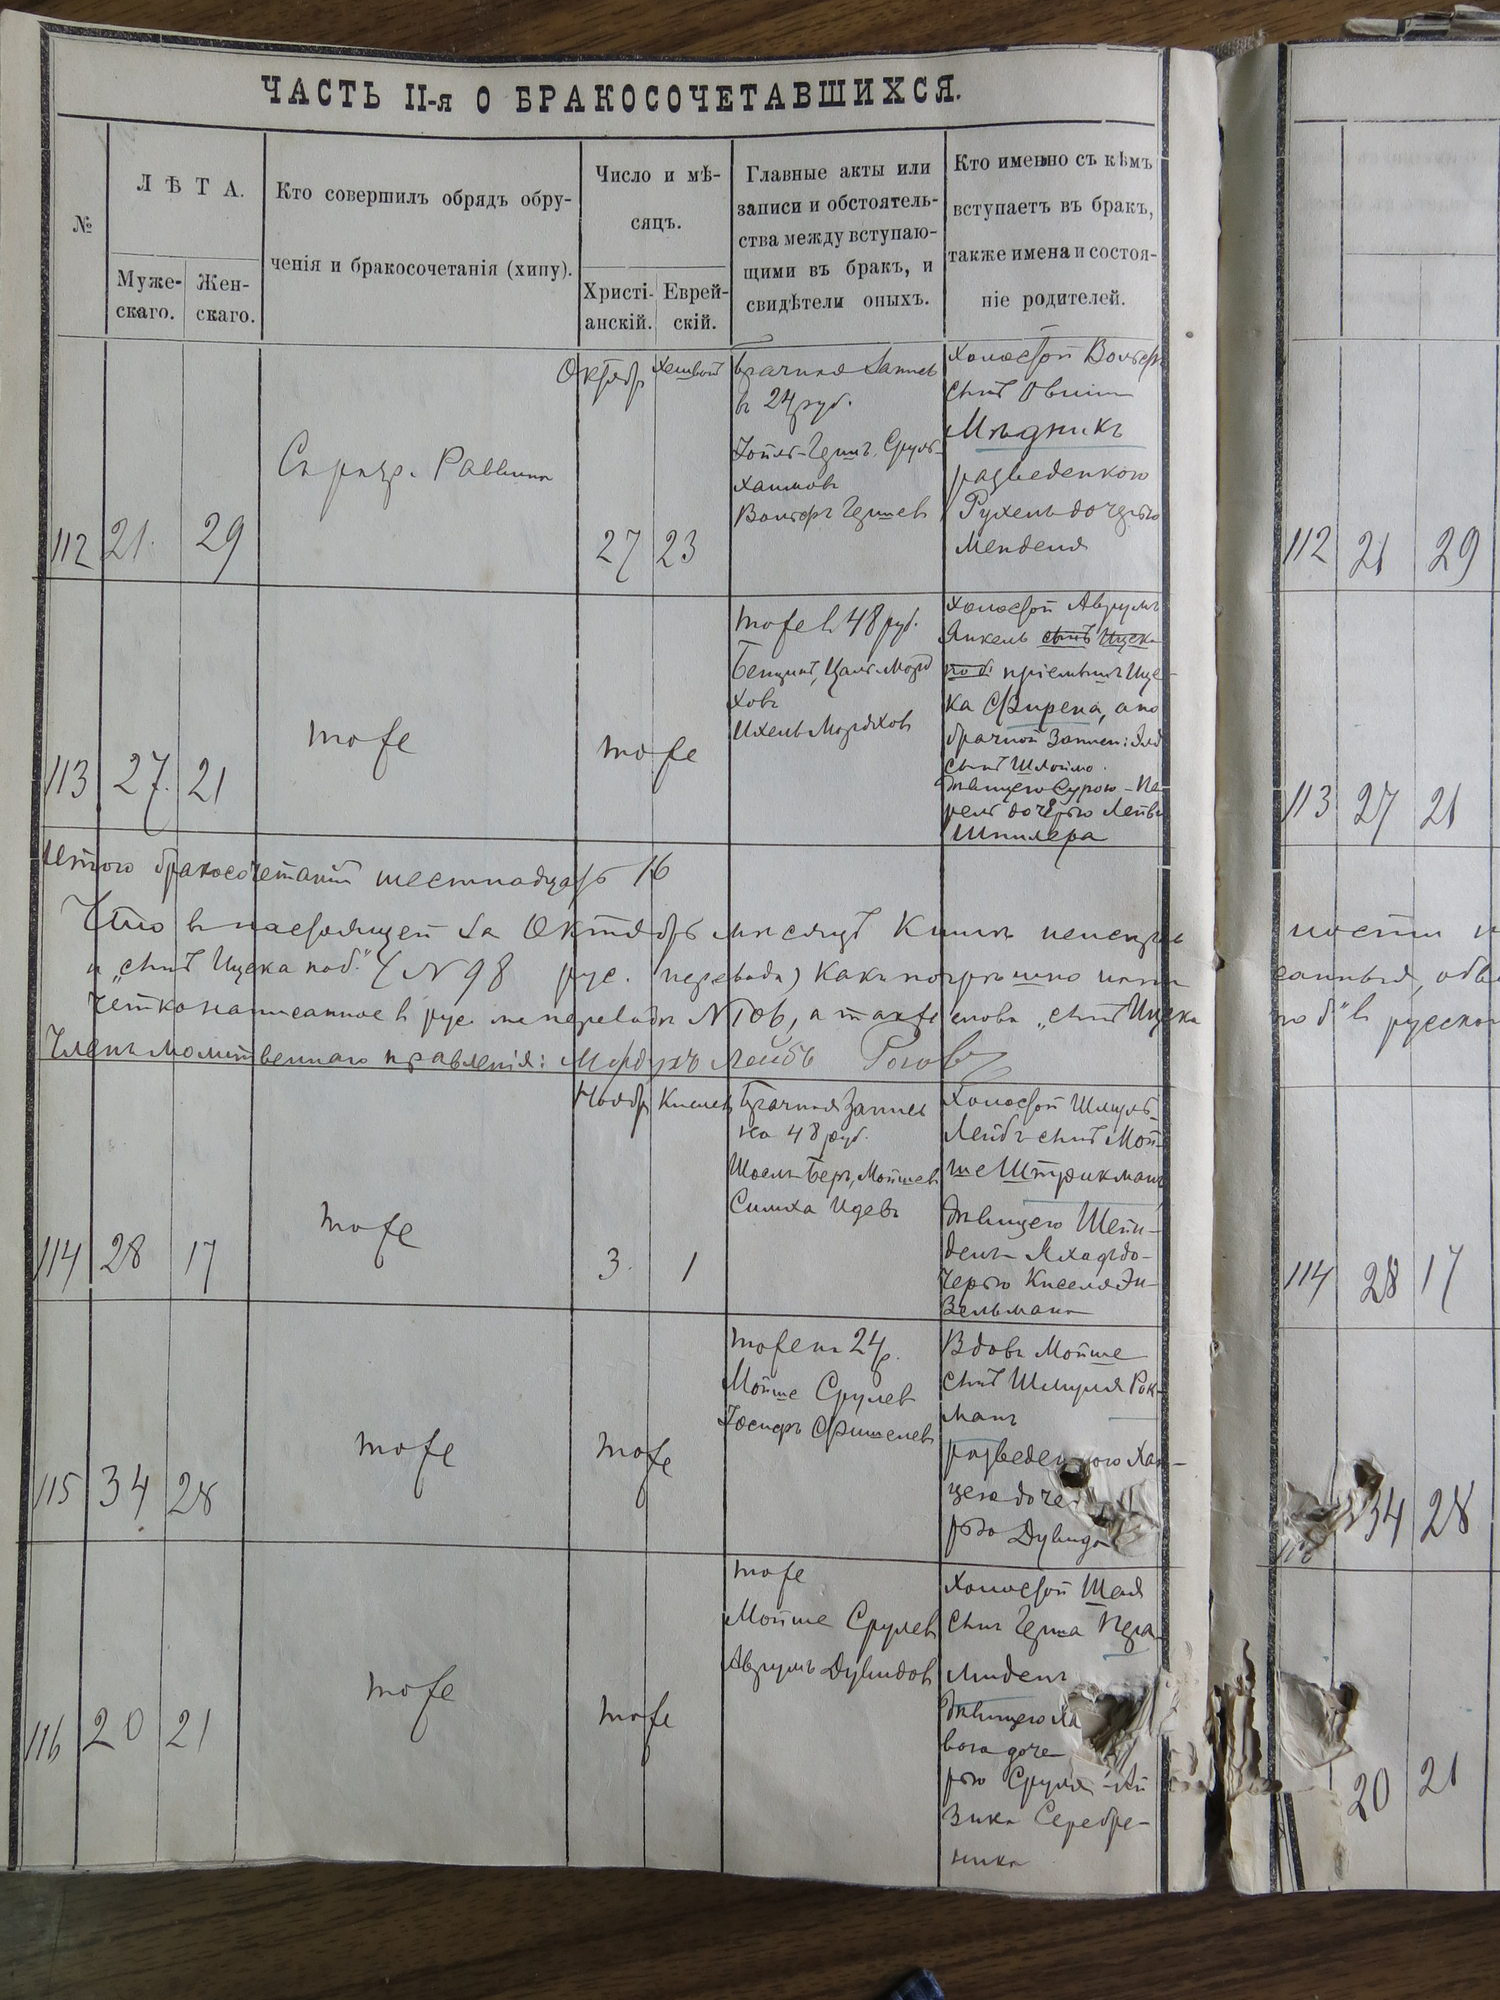 ЧАСТЬ II-я О БРАКОСОЧЕТАВШИХСЯ.
№
ЛѢТА.
Муже-
скаго.
Жен-
скаго.
Кто совершилъ обрядъ обру-
ченія и бракосочетанія (хипу).
Число и мѣ-
сяцъ.
Христі-
анскій.
Еврей-
скій.
Главные акты или
записи и обстоятель-
ства между вступаю-
щими въ бракъ, и
свидѣтели оныхъ.
Кто именно съ кѣмъ
вступаетъ въ бракъ,
также имена и состоя-
ніе родителей.
112 21 29
Раввина
Октябр
27 23
Брачная запись
в 24 руб.
Хаимовъ
Вольфъ Гершев
Холостой Вольфъ
сынъ Овшии
Мѣдникъ
разведенкою
Рухель дочерью
Менделя
113 27 21
тоже
тоже
тоже в 48 руб.
Бенціонъ, Цаль-Морд
ховъ
Ихель Мордхов
Холостой Аврумъ
Янкель сынъ Ицска
под. пріемышъ Ице-
ка Сфирена, а по
брачной записи: Эля
сынъ Шлоймо
дѣвицею Сурою-Пе-
рель дочерью Лейбы
Шпилера
Итого бракосочетаній шестнадцать 16
Что в настоящей за Октябрь мѣсяцъ Книгѣ
и „сынъ Ицска под." (№ 98 рус. перевода) какъ погрѣшно
четко написанное в рус. перевода № 106, а также слова „сынъ Ицска
Членъ молитвеннаго правленія: Мордухъ Лейбъ Рогов
114 28 17
тоже
Ноябр Кислев
3. 1
Брачная запись
на 48 руб.
Шоель-Беръ, Мойшев
Симха Идевъ
Холостой Шмуль-
Лейбъ сынъ Мой-
ше Штрикманъ
дѣвицею Шейн-
дель- дo-
черью Киселя Эй-
зельмана
115 34 28
тоже
тоже
тоже на 24 р.
Мойше Срулев
Іосифъ Фишелев
Вдовъ Мойше
сынъ Шмуля Рок-
манъ
Хан-
цею доче
рью Дувида
116 20 21
тоже
тоже
тоже
Мойше Срулев
Аврумъ Дувидов
Холостой Шая
сынъ Герша Пера-
мидень
дѣвицею Ха
доче
рью Сруля-Ай
зика Серебре-
ника
112 21 29
113 27 21
ности
санныя,
под" в русско
114 28 17
34 28
20 21